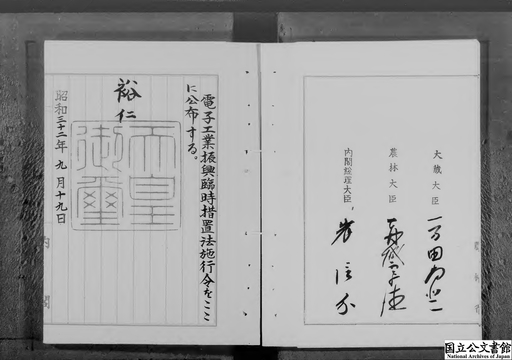 大蔵大臣 一万田尚登
農林大臣 赤城宗徳
内閣総理大臣 岸信介
電子工業振興臨時措置法施行令をここ
に公布する。
裕仁
天皇
御璽
昭和三十二年九月十九日
内閣
国立公文書館
National Archives of Japan